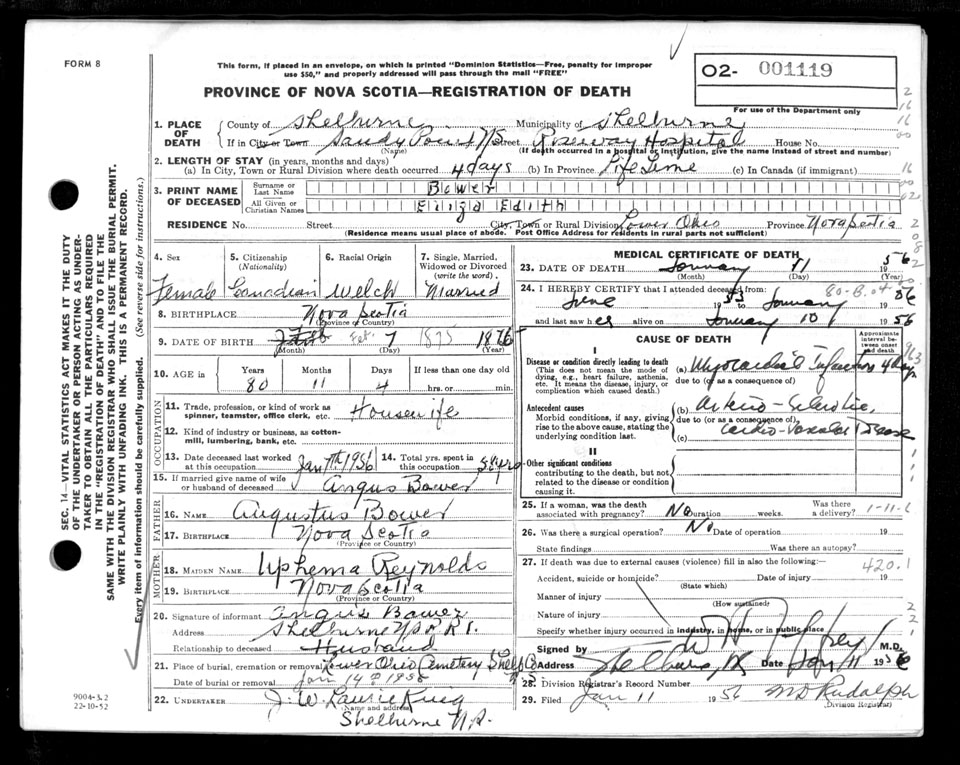 FORM 8
This form, if placed in an envelope, on which is printed "Dominion Statistics—Free, penalty for improper
use $50," and properly addressed will pass through the mail "FREE"
PROVINCE OF NOVA SCOTIA—REGISTRATION OF DEATH
O2- 001119
For use of the Department only
1. PLACE OF DEATH
County of Shelburne Municipality of Shelburne
If in City or Town Sandy Point N S Street Roseway Hospital House No.
(Name) (If death occurred in a hospital or institution, give the name instead of street and number)
2. LENGTH OF STAY (in years, months and days)
(a) In City, Town or Rural Division where death occurred 4 days (b) In Province Life Time (c) In Canada (if immigrant)
3. PRINT NAME OF DECEASED
Surname or Last Name Bower
All Given or Christian Names Eliza Edith
RESIDENCE No. Street City, Town or Rural Division Lower Ohio Province Nova Scotia
(Residence means usual place of abode. Post Office Address for residents in rural parts not sufficient)
4. Sex
Female
5. Citizenship
(Nationality)
Canadian
6. Racial Origin
Welch
7. Single, Married, Widowed or Divorced
(write the word)
Married
8. BIRTHPLACE Nova Scotia
(Province or Country)
9. DATE OF BIRTH Feb. 7 1875 1876
(Month) (Day) (Year)
10. AGE in
Years Months Days If less than one day old
80 11 4 hrs. or min.
OCCUPATION
11. Trade, profession, or kind of work as
spinner, teamster, office clerk, etc. Housewife
12. Kind of industry or business, as cotton-
mill, lumbering, bank, etc.
13. Date deceased last worked
at this occupation Jan 7th 1956
14. Total yrs. spent in
this occupation 58 yrs
15. If married give name of wife
or husband of deceased Angus Bower
FATHER
16. NAME Augustus Bower
17. BIRTHPLACE Nova Scotia
(Province or Country)
MOTHER
18. MAIDEN NAME Uphema Reynolds
19. BIRTHPLACE Nova Scotia
(Province or Country)
20. Signature of informant Angus Bower
Address Shelburne N S R R 1.
Relationship to deceased Husband
21. Place of burial, cremation or removal Lower Ohio Cemetery Shelb Co
Date of burial or removal Jan 14th 1956 N.S.
22. UNDERTAKER J. W. Laurie King
(Name and address)
Shelburne N.S.
MEDICAL CERTIFICATE OF DEATH
23. DATE OF DEATH January 11 1956
(Month) (Day) (Year)
24. I HEREBY CERTIFY that I attended deceased from: 80-8.04
June 1955 to January 1956
and last saw her alive on January 10 1956
CAUSE OF DEATH
Approximate interval between onset and death
I
Disease or condition directly leading to death
(This does not mean the mode of dying, e.g., heart failure, asthenia, etc. It means the disease, injury, or complication which caused death.)
(a) Myocardial Infarction 4 days
due to (or as a consequence of)
Antecedent causes
Morbid conditions, if any, giving rise to the above cause, stating the underlying condition last.
(b) Arterio-Sclerotic
due to (or as a consequence of)
(c) Cardio-Vascular Disease
II
Other significant conditions
contributing to the death, but not related to the disease or condition causing it.
25. If a woman, was the death
associated with pregnancy? No Duration weeks. Was there a delivery? 1-11-6
26. Was there a surgical operation? No Date of operation 19
State findings Was there an autopsy?
27. If death was due to external causes (violence) fill in also the following:— 420.1
Accident, suicide or homicide? Date of injury 19
(State which)
Manner of injury
(How sustained)
Nature of injury
Specify whether injury occurred in industry, in home, or in public place
Signed by M.D.
Address Shelburne, N.S. Date Jan 11 1956
28. Division Registrar's Record Number
29. Filed Jan 11 1956 M D Rudolph
Division Registrar
SEC. 14—VITAL STATISTICS ACT MAKES IT THE DUTY
OF THE UNDERTAKER OR PERSON ACTING AS UNDER-
TAKER TO OBTAIN ALL THE PARTICULARS REQUIRED
IN THE "REGISTRATION OF DEATH" AND TO FILE THE
SAME WITH THE DIVISION REGISTRAR WHO SHALL ISSUE THE BURIAL PERMIT.
WRITE PLAINLY WITH UNFADING INK. THIS IS A PERMANENT RECORD.
Every item of information should be carefully supplied. (See reverse side for instructions.)
9004-3.2
22-10-52